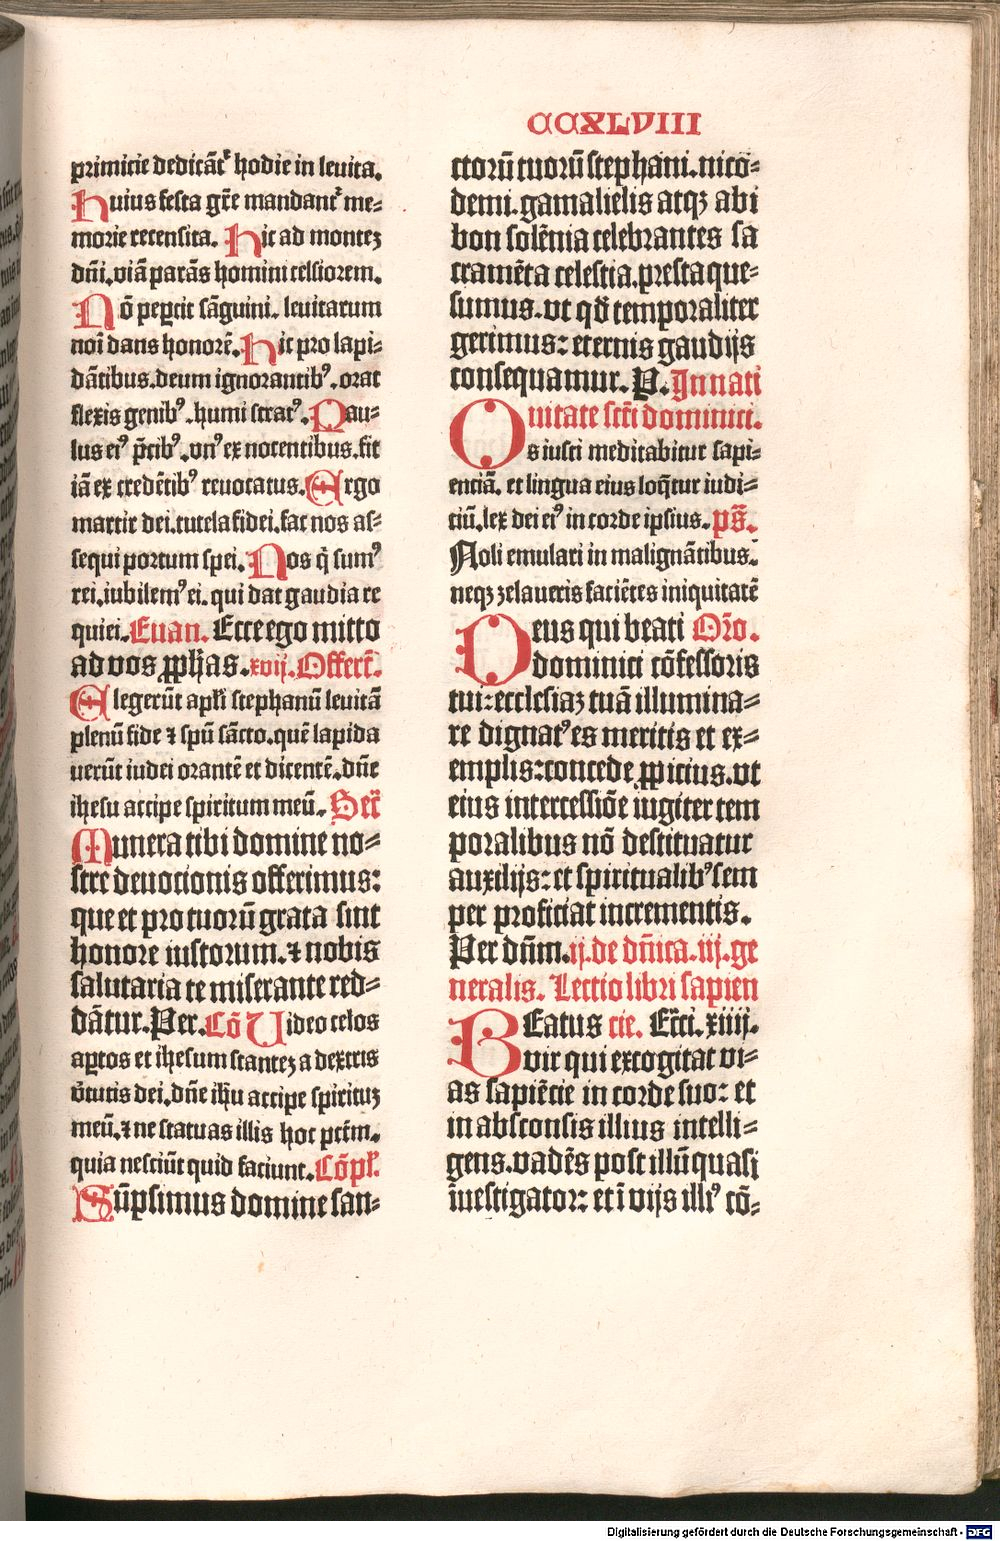 CCXLVIII
primicie dedicāt᷑ hodie in leuita.
Huius festa gr̄e mandant᷑ me⸗
morie recensita. Hic ad montez
dn̄i.viā parās homini celsiorem.
Nō pepcit sāguini. leuitarum
noi᷑ dans honorē. Hic pro lapi⸗
dātibus.deum ignorantibꝰ.orat
flexis genibꝰ.humi stratꝰ. Pau⸗
lus eiꝰ p̄cibꝰ.vnꝰ ex nocentibus.fit
iā ex credētibꝰ reuocatus. Ergo
martir dei.tutela fidei.fac nos as⸗
sequi portum spei. Nos q̄ sumꝰ
rei.iubilemꝰ ei. qui dat gaudia re
quiei. Euan. Ecce ego mitto
ad vos ꝓph̄as. xvij. Offert̄.
Elegerūt apl̄i stephanū leuitā
plenū fide ⁊ spū sācto.quē lapida
uerūt iudei orantē et dicentē.dn̄e
ihesu accipe spiritum meū. Secr̄
Munera tibi domine no⸗
stre deuotionis offerimus:
que et pro tuorū grata sint
honore iustorum.⁊ nobis
salutaria te miserante red⸗
dātur. Per. Cō Uideo celos
aꝑtos et ihesum stantez a dextris
v̄tutis dei.dn̄e ihu accipe spirituz
meū.⁊ ne statuas illis hoc pctm̄.
quia nesciūt quid faciunt. Cōpl̄.
Sūpsimus domine san⸗
ctorū tuorū stephani.nico⸗
demi.gamalielis atqꝫ abi
bon solēnia celebrantes sa
cramēta celestia.presta que⸗
sumus.vt qd̄ temporaliter
gerimus: eternis gaudijs
consequamur. P. In nati
uitate scti̅ dominici.
Os iusti meditabitur sapi⸗
entiā. et lingua eius loq̄tur iudi⸗
tiū.lex dei eiꝰ in corde ipsius. ps̄.
Noli emulari in malignātibus.
neqꝫ zelaueris faciētes iniquitatē
Deus qui beati Or̄o.
dominici cōfessoris
tui: ecclesiaz tuā illumina⸗
re dignatꝰ es meritis et ex⸗
emplis: concede ꝓpicius.vt
eius intercessiōe iugiter tem
poralibus nō destituatur
auxilijs: et spiritualibꝰ sem
per proficiat incrementis.
Per dn̄m. ij. de dn̄ica.iij. ge
neralis. Lectio libri sapien
BEatus cie. Ecc̄i. xiiij.
vir qui excogitat vi⸗
as sapiētie in corde suo: et
in absconsis illius intelli⸗
gens.vadēs post illū quasi
īuestigator: et ī vijs illiꝰ cō⸗
Digitalisierung gefördert durch die Deutsche Forschungsgemeinschaft - DFG